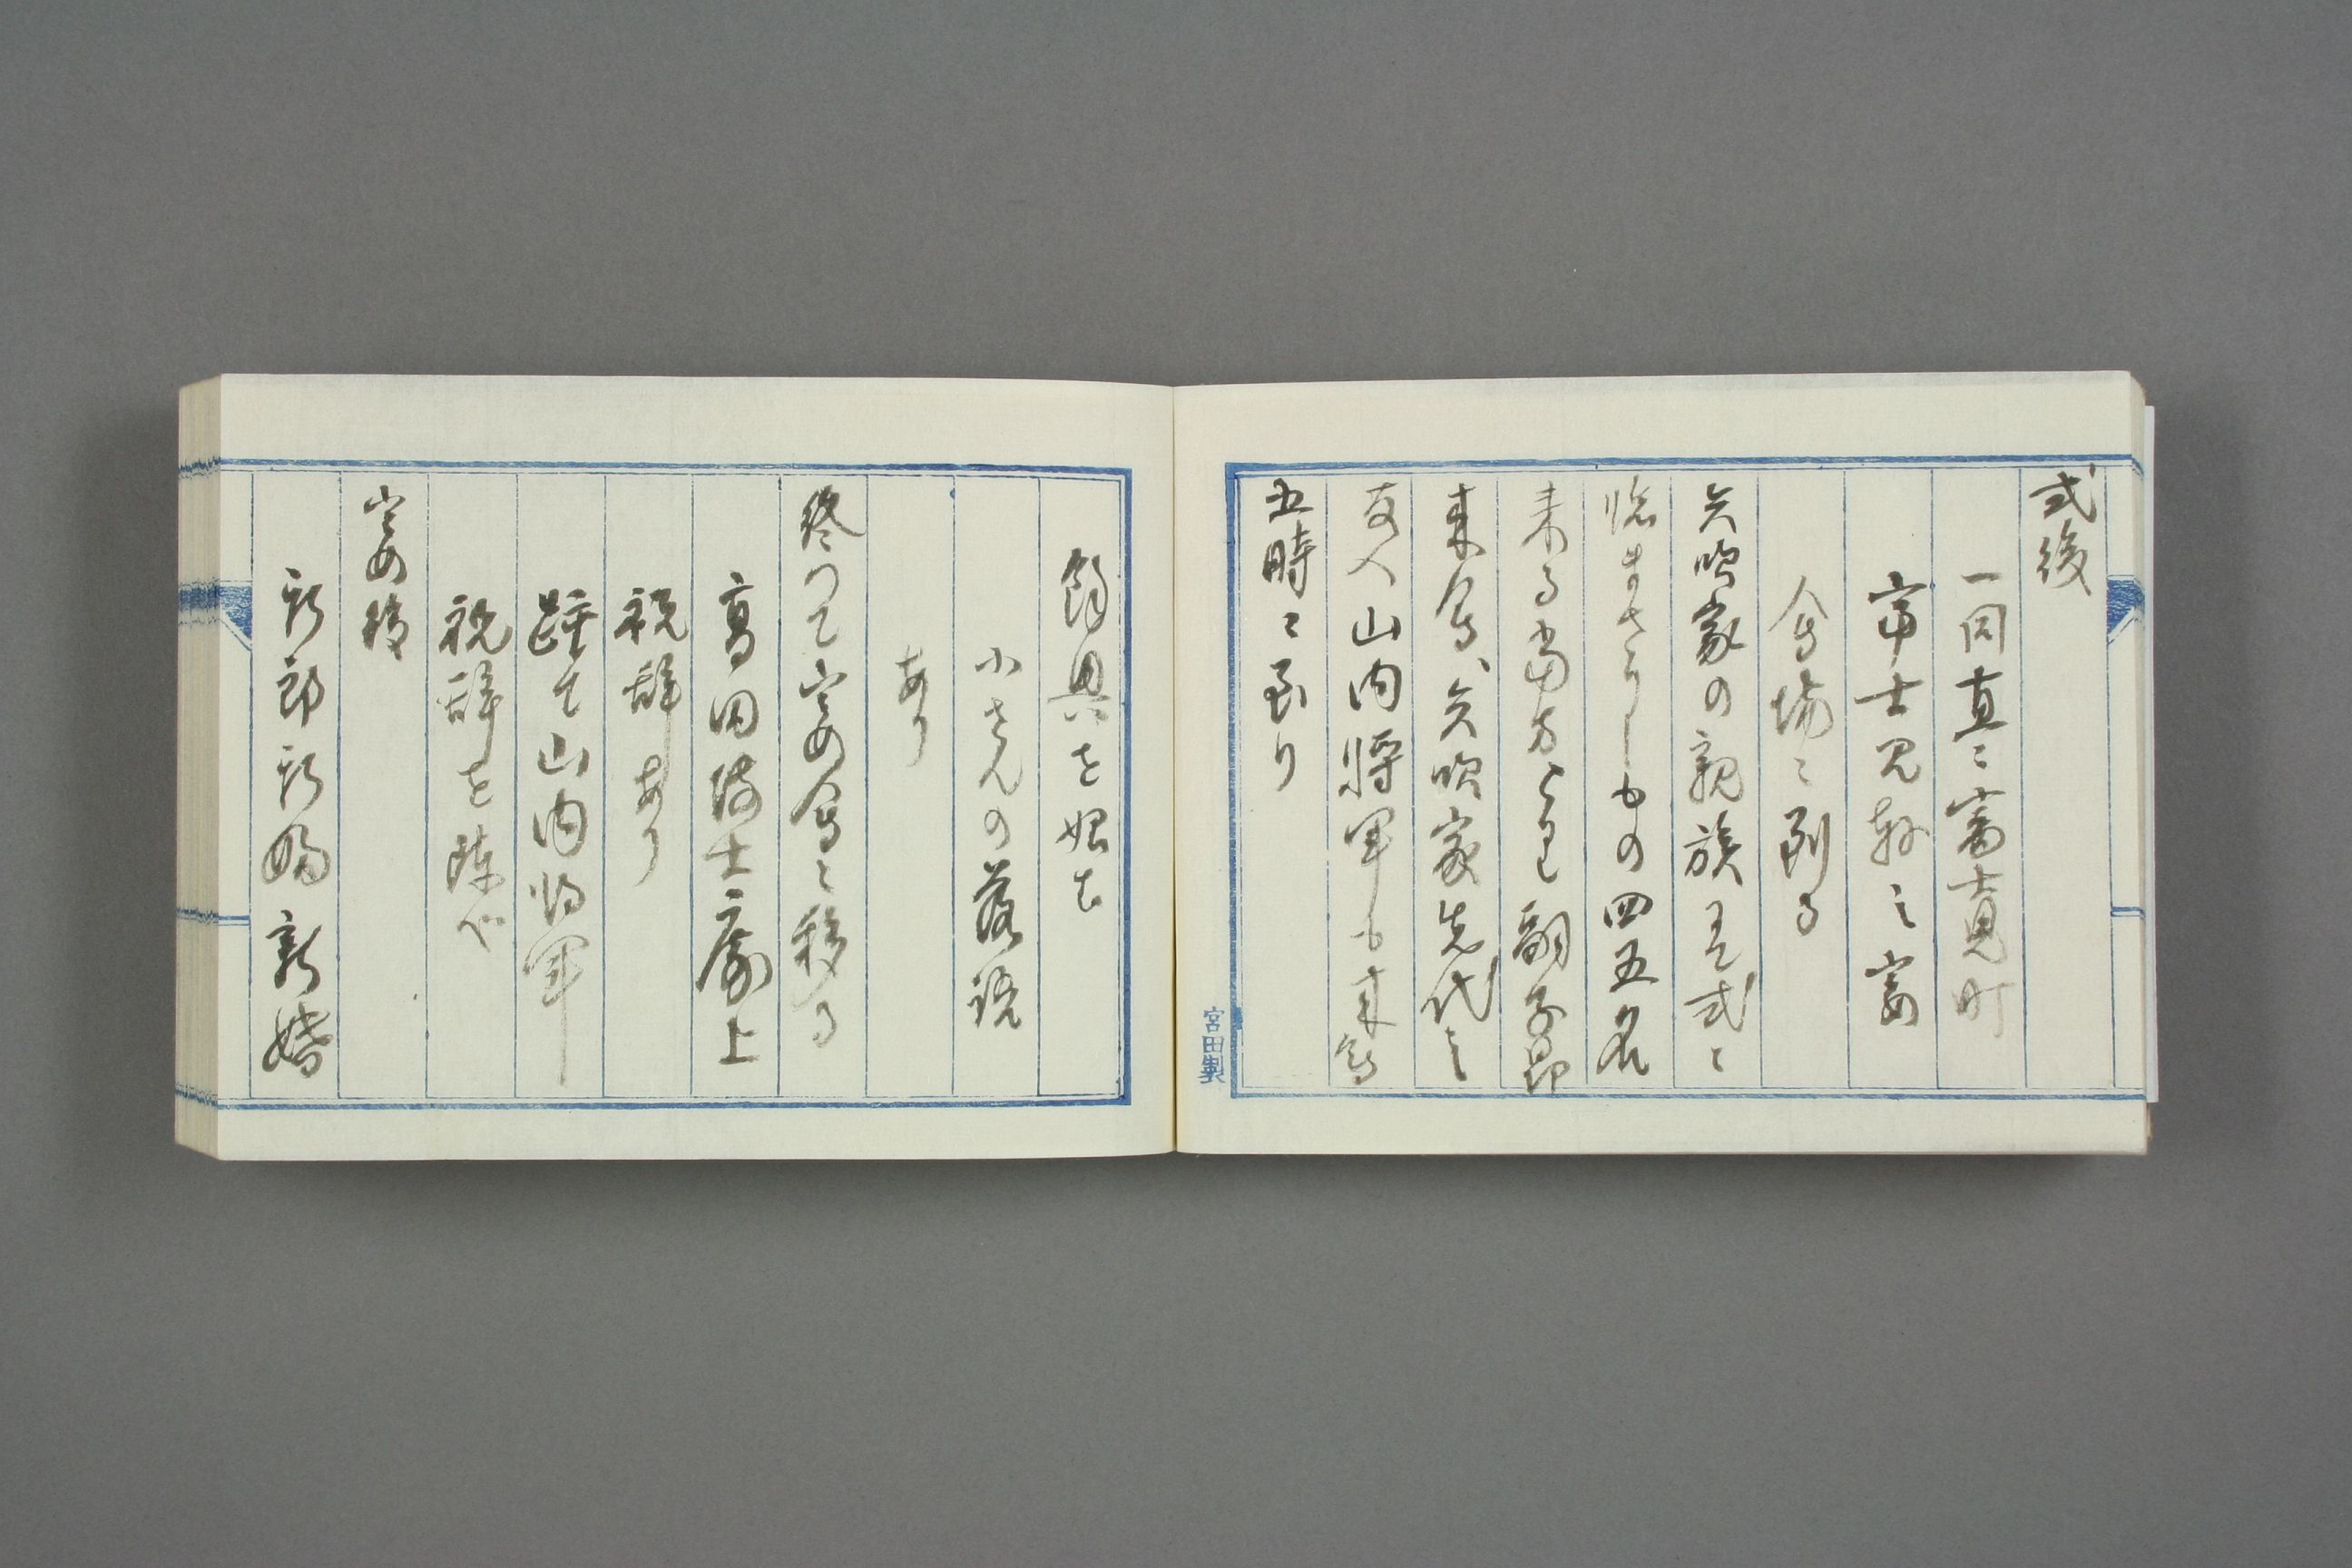 式後
一同直ニ富士見町
富士見軒之宴
会場ニ到る
矢吹家の親族ニて式ニ
臨まさりしもの四五名
来る当方よりも
来会、矢吹家先代之
友人山内将軍も来会
五時ニ到り
余興を始む
小さんの落語
あり
終つて宴会ニ移る
高田博士席上
祝辞あり
踵て山内将軍
祝辞を陳へ
宴後
新郎新婦新婚
宮田製